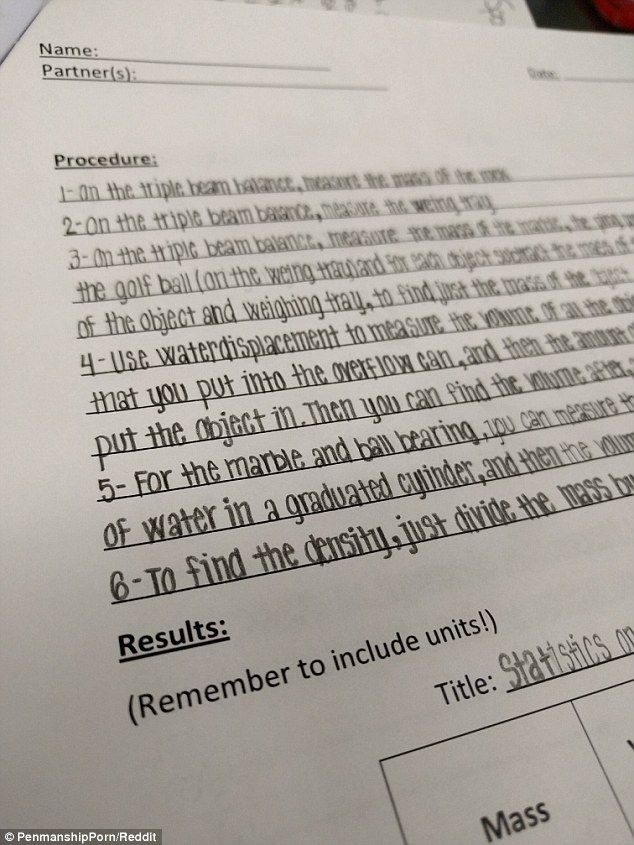 Name:
Partner(s):
Date:
Procedure:
1- On the triple beam balance, measure the mass of the
2- On the triple beam balance, measure the weing tray
3- On the triple beam balance, measure the mass of the marble, the ping
the golf ball (on the weing tray) and for each object subtract the mass of
of the object and weighing tray, to find just the mass of the object
4- Use water displacement to measure the volume of all the
that you put into the overflow can, and then the amount
put the object in. Then you can find the volume after
5- For the marble and ball bearing, you can measure
of water in a graduated cylinder, and then the
6- To find the density, just divide the mass
Results:
(Remember to include units!)
Title: Statistics
Mass
© PenmanshipPorn/Reddit